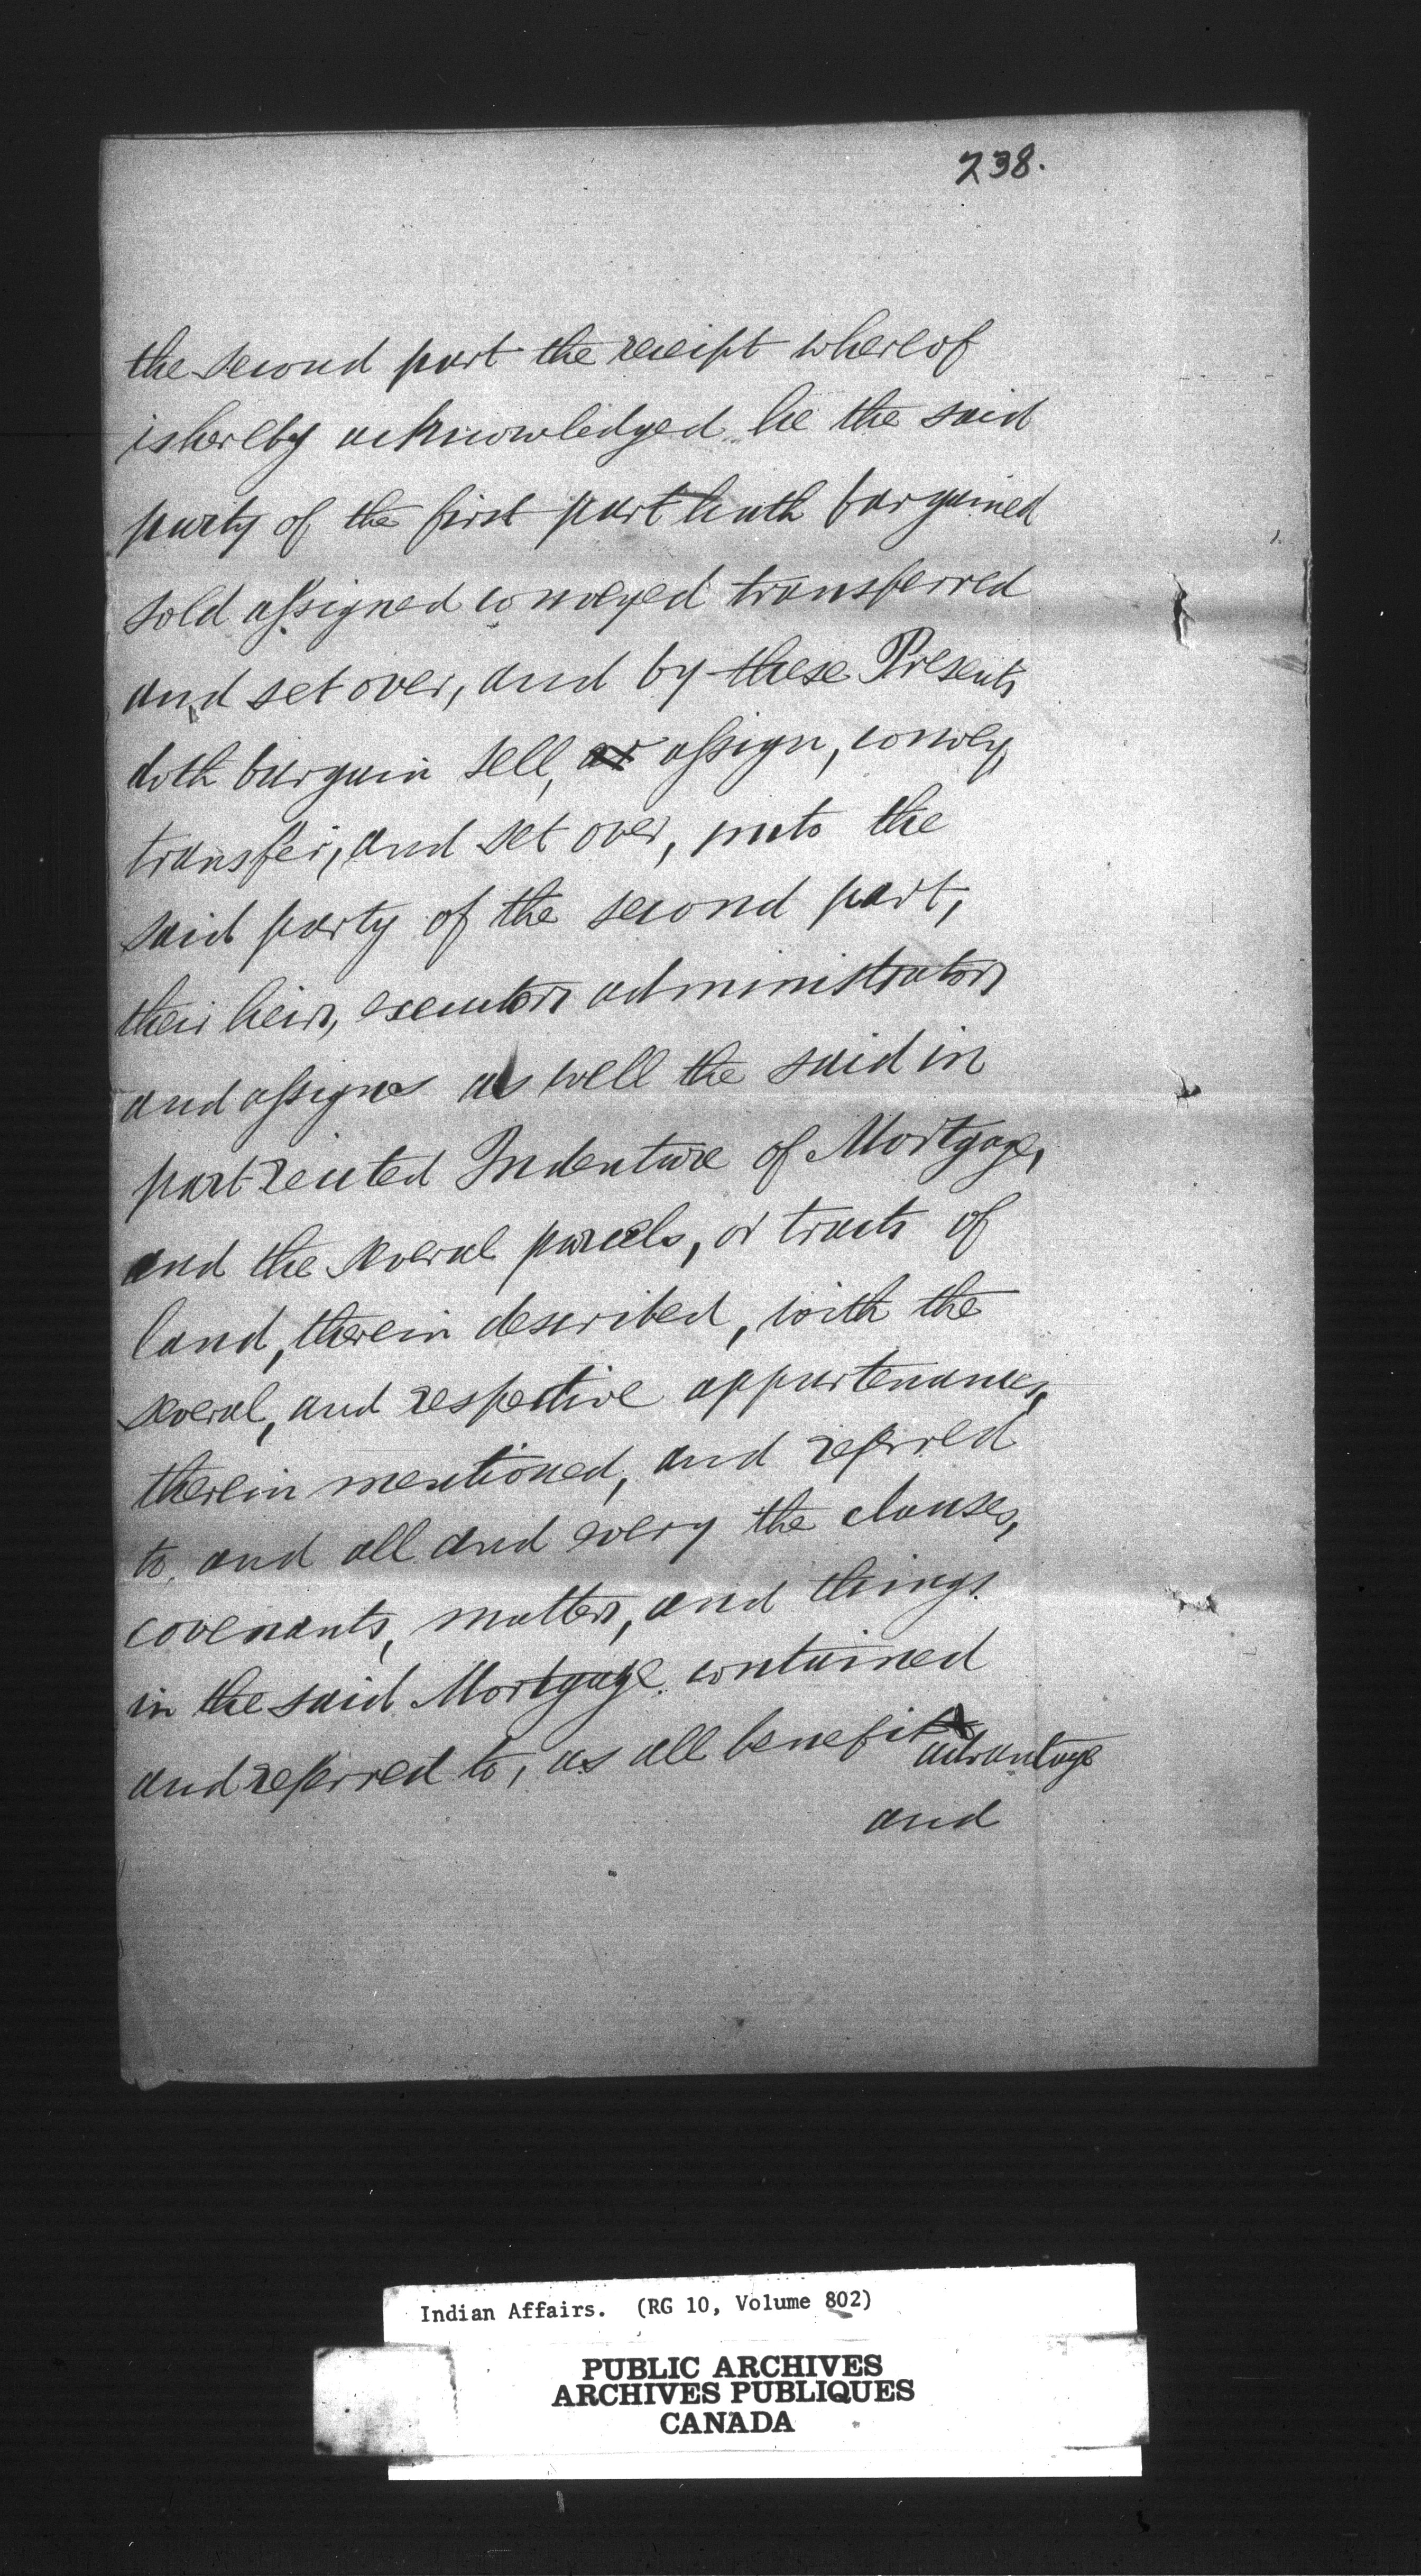 238.
the second part the receipt whereof
is hereby acknowledged he the said
party of the first part hath bargained
sold assigned conveyed transferred
and set over, and by these Presents
doth bargain sell, assign, convey,
transfer, and set over, unto the
said party of the second part,
their heirs, executors administrators
and assigns as well the said in
part recited Indenture of Mortgage,
and the several parcels, or tracts of
land, therein described, with the
several, and respective appurtenances,
therein mentioned, and referred
to, and all and every the clauses,
covenants, matters, and things
in the said Mortgage contained
and referred to, as all benefit advantage
and
Indian Affairs. (RG 10, Volume 802)
PUBLIC ARCHIVES
ARCHIVES PUBLIQUES
CANADA